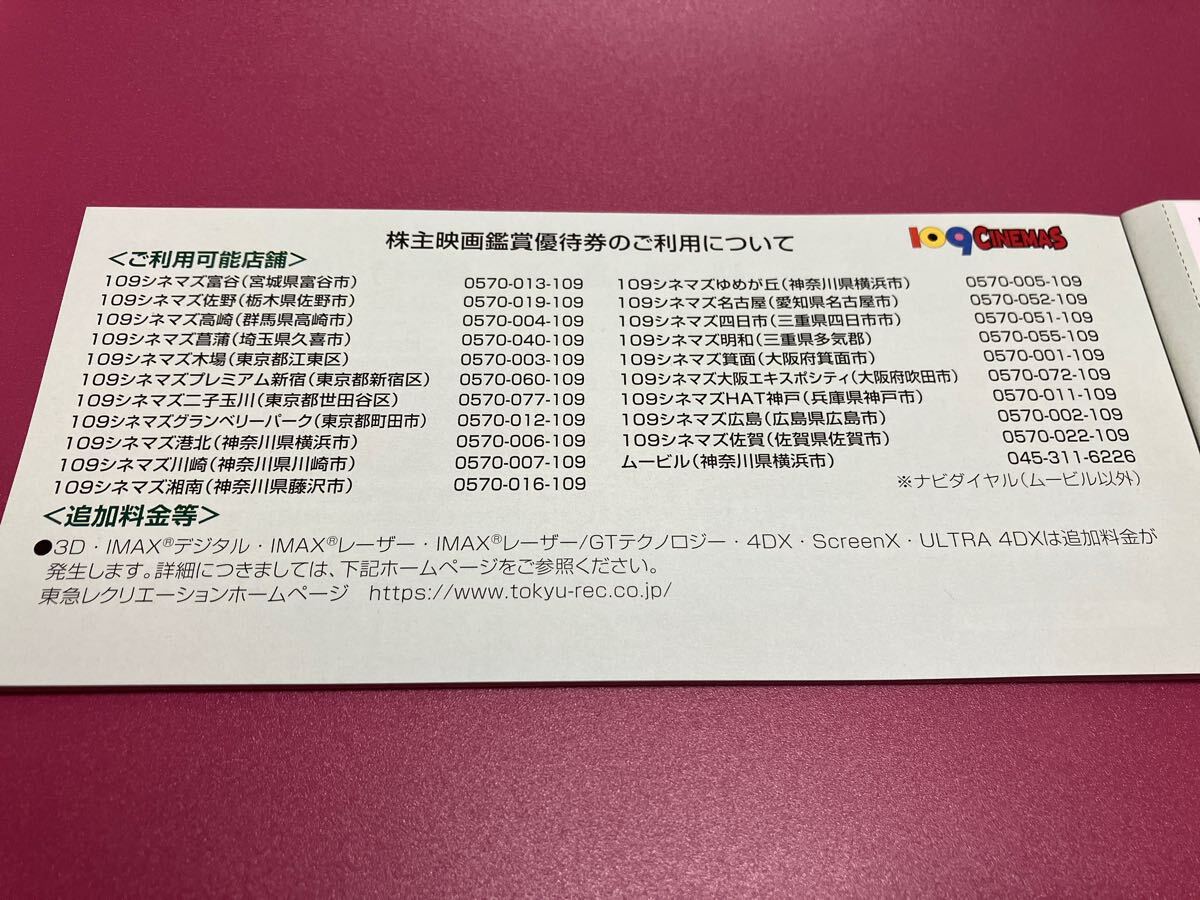 株主映画鑑賞優待券のご利用について
109 CINEMAS
<ご利用可能店舗>
109シネマズ富谷(宮城県富谷市) 0570-013-109
109シネマズ佐野(栃木県佐野市) 0570-019-109
109シネマズ高崎(群馬県高崎市) 0570-004-109
109シネマズ菖蒲(埼玉県久喜市) 0570-040-109
109シネマズ木場(東京都江東区) 0570-003-109
109シネマズプレミアム新宿(東京都新宿区) 0570-060-109
109シネマズ二子玉川(東京都世田谷区) 0570-077-109
109シネマズグランベリーパーク(東京都町田市) 0570-012-109
109シネマズ港北(神奈川県横浜市) 0570-006-109
109シネマズ川崎(神奈川県川崎市) 0570-007-109
109シネマズ湘南(神奈川県藤沢市) 0570-016-109
109シネマズゆめが丘(神奈川県横浜市) 0570-005-109
109シネマズ名古屋(愛知県名古屋市) 0570-052-109
109シネマズ四日市(三重県四日市市) 0570-051-109
109シネマズ明和(三重県多気郡) 0570-055-109
109シネマズ箕面(大阪府箕面市) 0570-001-109
109シネマズ大阪エキスポシティ(大阪府吹田市) 0570-072-109
109シネマズHAT神戸(兵庫県神戸市) 0570-011-109
109シネマズ広島(広島県広島市) 0570-002-109
109シネマズ佐賀(佐賀県佐賀市) 0570-022-109
ムービル(神奈川県横浜市) 045-311-6226
※ナビダイヤル(ムービル以外)
<追加料金等>
●3D・IMAX®デジタル・IMAX®レーザー・IMAX®レーザー/GTテクノロジー・4DX・ScreenX・ULTRA 4DXは追加料金が
発生します。詳細につきましては、下記ホームページをご参照ください。
東急レクリエーションホームページ https://www.tokyu-rec.co.jp/